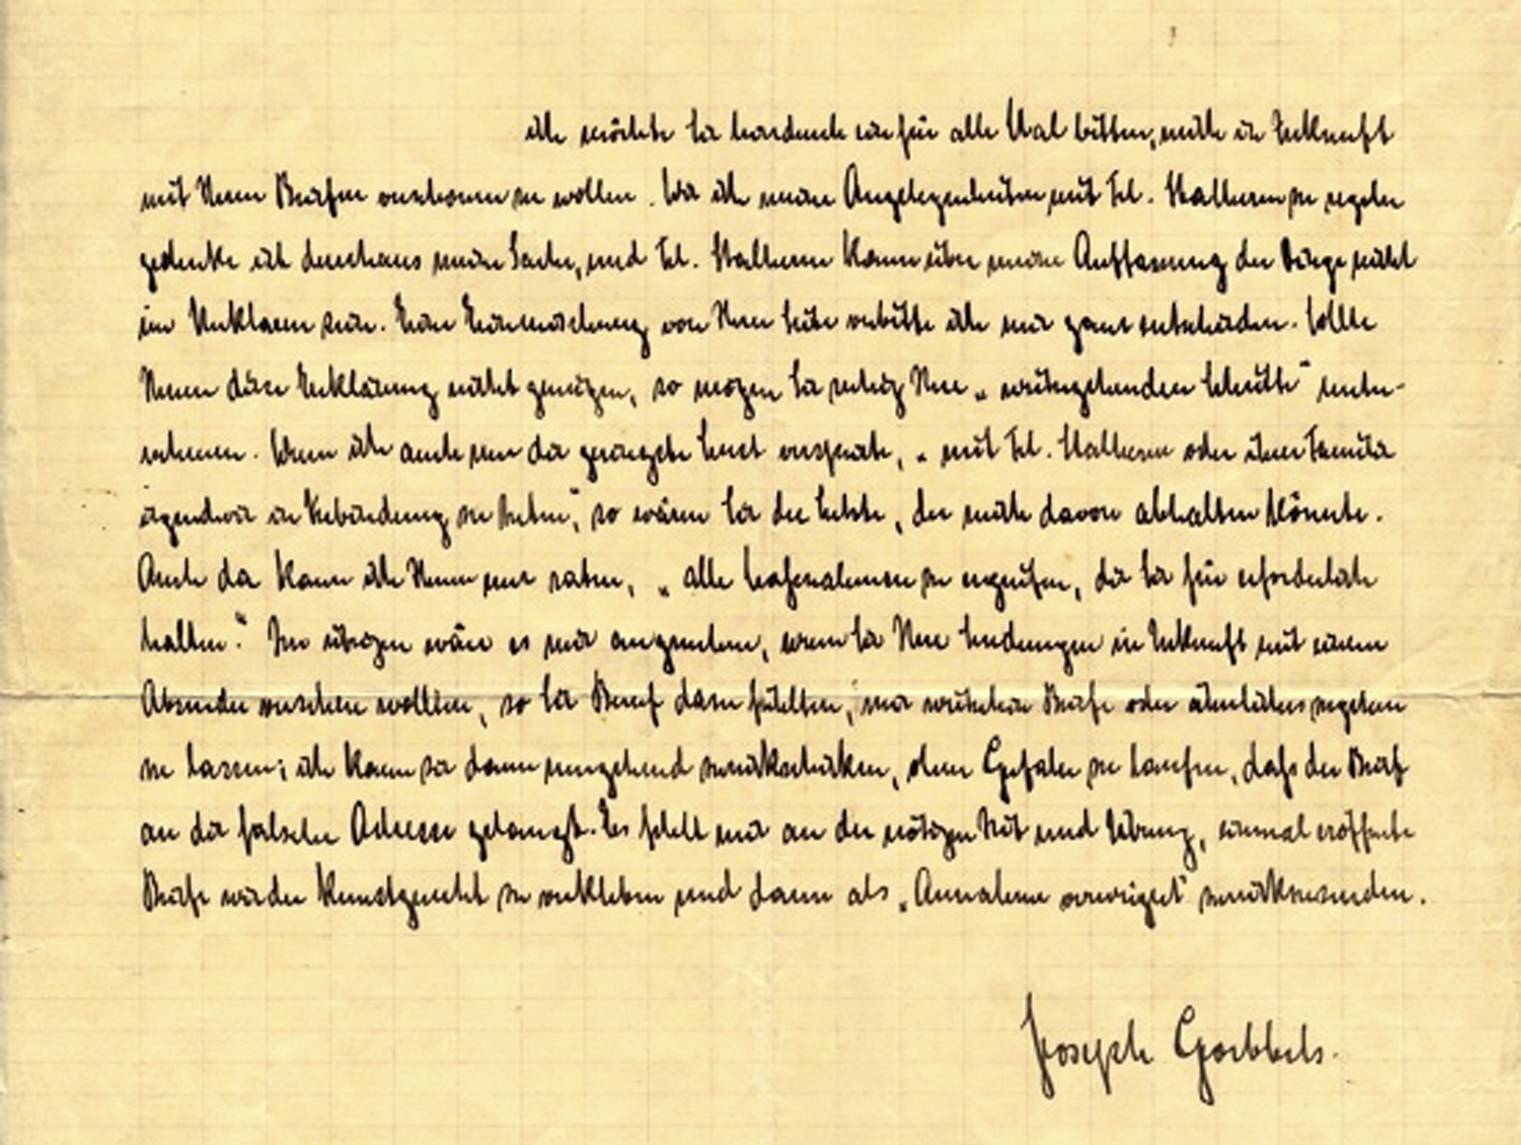 ich möchte Sie hierdurch ein für alle Mal bitten, mich in Zukunft
mit Ihren Briefen verschonen zu wollen. Wie ich meine Angelegenheiten mit Frl. Stalherm zu regeln
gedenke ist durchaus meine Sache, und Frl. Stalherm kann über meine Auffassung der Dinge nicht
im Unklaren sein. Eine Einmischung von Ihrer Seite verbitte ich mir ganz entschieden. Sollte
Ihnen diese Erklärung nicht genügen, so mögen Sie ruhig Ihre „weitergehenden Schritte" unter-
nehmen. Wenn ich auch nur die geringste Lust verspürte, „mit Frl. Stalherm oder ihrer Familie
irgendwie in Verbindung zu treten", so wären Sie der Letzte, der mich davon abhalten könnte.
Auch da kann ich Ihnen nur raten, „alle Maßnahmen zu ergreifen, die Sie für erforderlich
halten." Im übrigen wäre es mir angenehm, wenn Sie Ihre Sendungen in Zukunft mit einem
Absender versehen wollten, so Sie Beruf dazu fühlten, mir weiterhin Briefe oder ähnliches zugehen
zu lassen; ich kann sie dann umgehend zurückschicken, ohne Gefahr zu laufen, daß der Brief
an die falsche Adresse gelangt. Es fehlt mir an der nötigen Zeit und Übung, einmal eröffnete
Briefe wieder kunstgerecht zu verkleben und dann als „Annahme verweigert" zurückzusenden.
Joseph Goebbels.